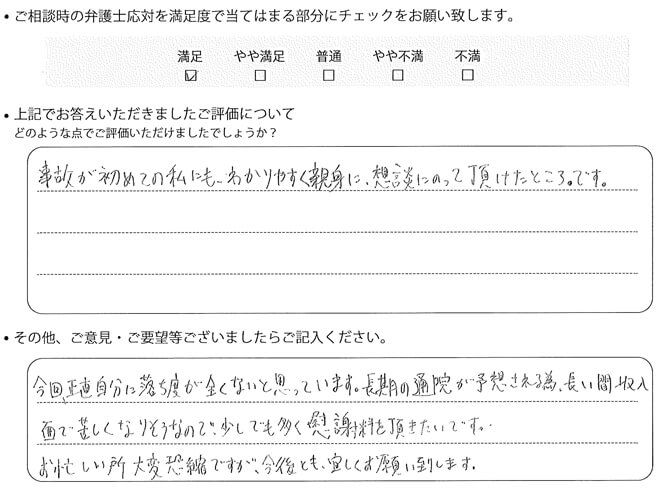 ・ご相談時の弁護士応対を満足度で当てはまる部分にチェックをお願い致します。
満足 やや満足 普通 やや不満 不満
☑ □ □ □ □
・上記でお答えいただきましたご評価について
どのような点でご評価いただけましたでしょうか？
事故が初めての私にも、わかりやすく親身に、想談にのって頂けたところ。です。
・その他、ご意見・ご要望等ございましたらご記入ください。
今回、正直自分に落ち度が全くないと思っています。長期の通院が予想される為、長い間収入
面で苦しくなりそうなので、少しでも多く慰謝料を頂きたいです。
お忙しい所大変恐縮ですが、今後とも、宜しくお願い到します。